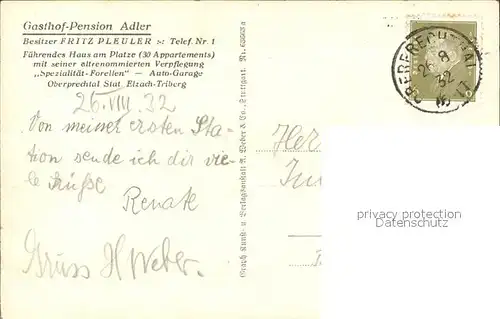 Gasthof-Pension Adler
Besitzer FRITZ PLEULER :-: Telef. Nr. 1
Führendes Haus am Platze (30 Appartements)
mit seiner altrenommierten Verpflegung
„Spezialität-Forellen" — Auto-Garage
Oberprechtal Stat. Elzach-Triberg
26.VIII.32
Von meiner ersten Sta-
tion sende ich dir vie-
le Grüße
Renate
Gruss H Weber.
Graph. Kunst- u. Verlagsanstalt A. Weber & Co., Stuttgart. Nr.
OBERPRECHTAL
26 8
32
Her
privacy protection
www.ansichtskartenversand.com